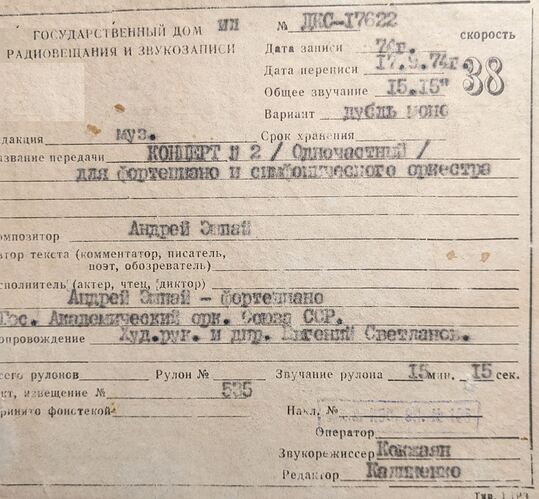 ГОСУДАРСТВЕННЫЙ ДОМ
РАДИОВЕЩАНИЯ И ЗВУКОЗАПИСИ
№ ДКС-17622
скорость
Дата записи 74г.
Дата переписи 17.9.74г.
38
Общее звучание 15.15"
Вариант дубль моно
едакция муз.
Срок хранения
азвание передачи КОНЦЕРТ № 2 / Одночастный /
для фортепиано и симфонического оркестра
омпозитор Андрей Эшпай
втор текста (комментатор, писатель,
поэт, обозреватель)
сполнитель (актер, чтец, диктор)
Андрей Эшпай - фортепиано
Гос. Академический орк. Союза ССР.
опровождение Худ.рук. и дир. Евгений Светланов.
сего рулонов Рулон № Звучание рулона 15 мин. 15 сек.
кт, извещение № 535
ринято фонотекой
Накл. №
Оператор
Звукорежиссер Кокжаян
Редактор Калиненко